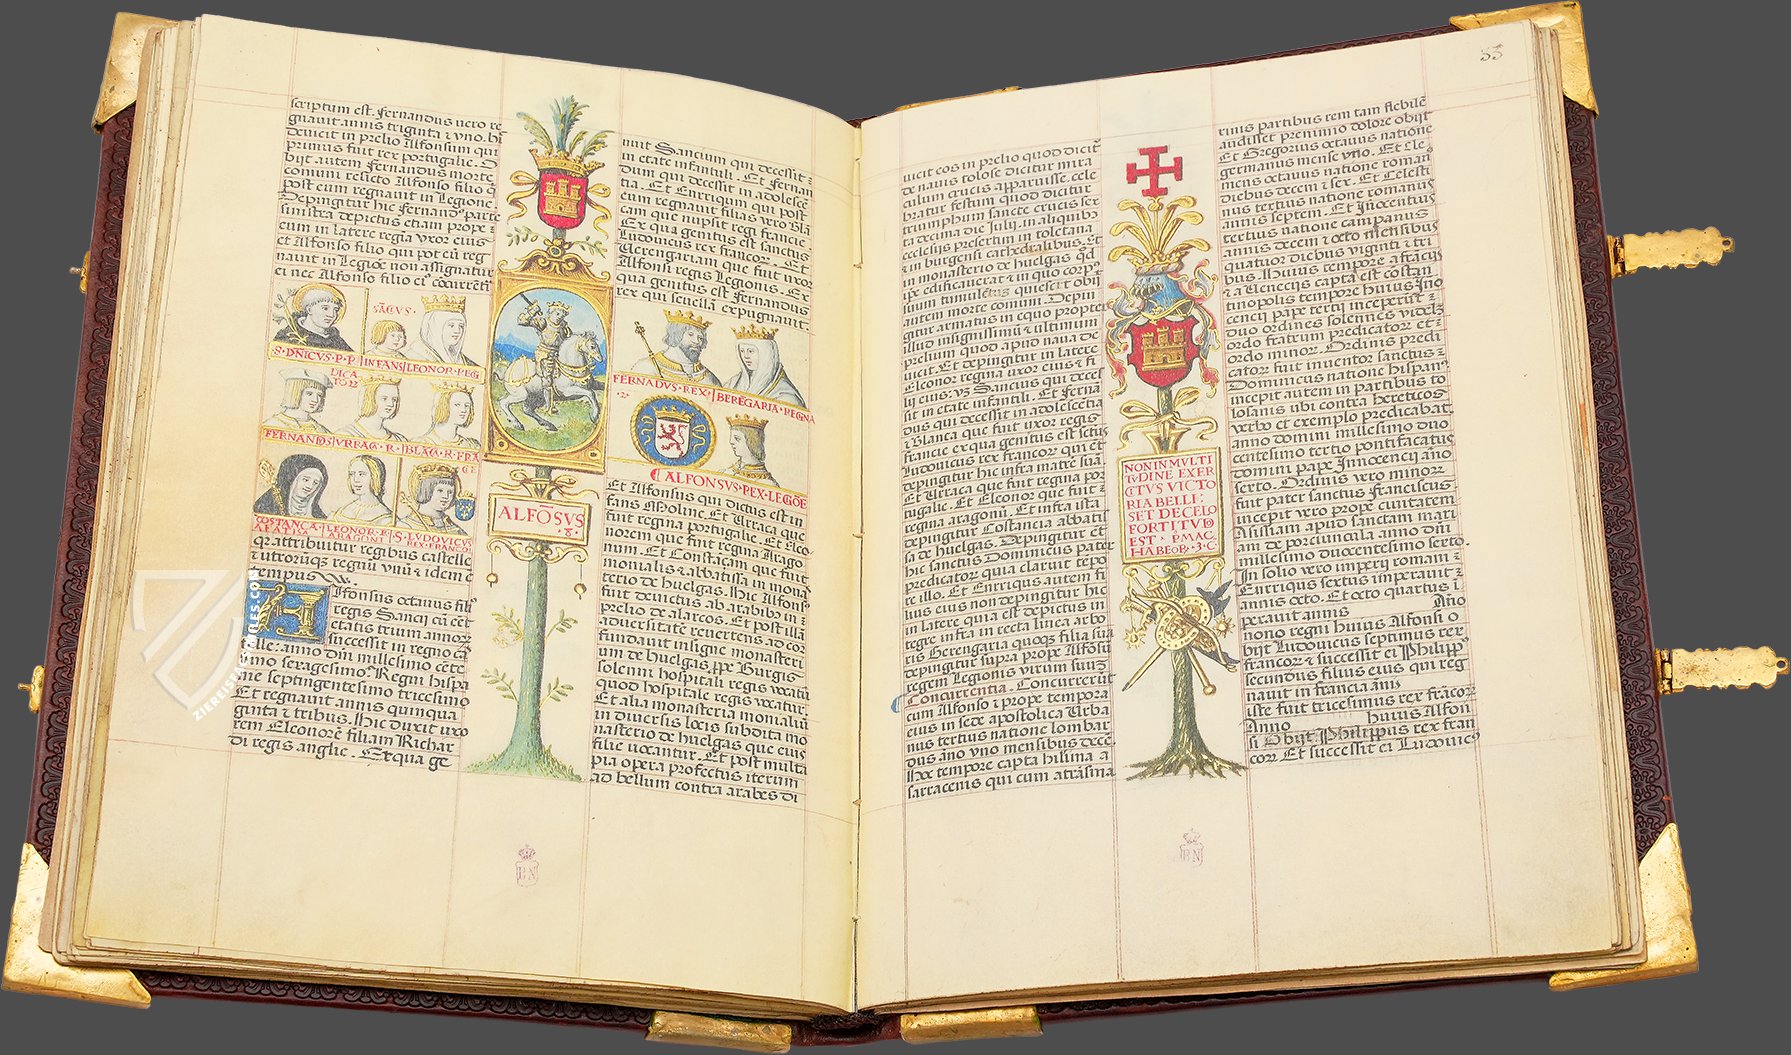 scriptum est. Fernandus vero re
gnavit annis triginta ⁊ vno. hi
devicit in prelio Alfonsum qui
primus fuit rex portugalie. O
bijt autem fernandus morte
comuni relicto Alfonso filio q̄
post eum regnavit in Legione
Depingitur hic fernand⁹ parte
sinistra depictus etiam prope ⁊
eum in latere regia vxor eius
et Alfonso filio qui pot eū reg
navit in Legiōe non assignatur
ei nec Alfonso filio ei⁹ cōcurrēti
S·DÑICVS·P·P
SĀCVS·
INFANS
LEONOR·REG
FERNANDS
VRRAC·R·
DICA
TOR
BLĀCA·R·FRĀ
CE
COSTANCA·
ABATISA
LEONOR·R·
ARAGONI
S·LVDOVICVS
REX·FRANCOR
qr attribuitur regibus castelle
⁊ utrorūqȝ regnū vnū ⁊ idem ē
tempus
Alfonsus octavus fili⁹
regis Sancij cū eēt
etatis trium annoꝝ
successit in regno ca
telle: anno dni millesimo cēte
simo sexagesimo. Regni hispa
nie septingentesimo tricesimo
Et regnavit annis quinqua
ginta ⁊ tribus. Hic duxit uxo
rem Eleonorē filiam Richar
di regis anglie. Ex qua ge
ALFŌSVS
·8·
nuit Sancium qui decessit ⁊
in etate infantuli. Et fernan
dum qui decessit in adolescē
tia. Et Enriqum qui post
eum regnavit filias vero Blā
cam que nupsit regi francie
Ex qua genitus est sanctus
Ludovicus rex francoꝝ. Et
Verengariam que fuit uxor
Alfonsi regis Legionis. Ex
qua genitus est fernandus
rex qui sevellā expugnavit.
FERNADVS·REX·
·2·
BEREGARIA·REGINA
ALFONSVS·REX·LEGIŌE
Et Alfonsus qui dictus est in
fans Moline Et Vrraca que
fuit regina portugalie. Et Eleo
norem que fuit regina Arago
num. Et Constāçam que fuit
monialis ⁊ abbatissa in mona
terio de huelgas. Hic Alfons⁹
fuit devictus ab arabib⁹ in
prelio de alarcos. Et post illā
adversitatē revertens ad cor
fundavit insigne monasteri
um de huelgas ꝓpe Burgis
solenni hospitali regis vocatur
quod hospitale regis vocatur,
Et alia monasteria monialiū
in diversis locis subdita mo
nasterio de huelgas que eius
filie vocantur. Et post multa
pia opera profectus iterum
ad bellum contra arabes di
53
vicit eos in prelio quod dicit
de navis tolose dicitur mira
culum crucis apparuisse. cele
bratur festum quod dicitur
triumphum sancte crucis sex
ta decima die Julij in aliquibo
ecclesijs presertim in toletana
⁊ in burgensi cathedralibus. Et
in monasterio de huelgas qd
ipe edificaverat ⁊ in quo corp⁹
suum tumulatus quiescit obi
autem morte comuni. Depin
gitur armatus in equo propter
illud insignissimū ⁊ ultimum
prelium quod apud nava de
vicit. Et depingitur in latere
Eleonor regina uxor eius ⁊ fi
lij eius: vȝ Sancius qui deces
sit in etate infantili. Et ferna
dus qui decessit in adolescētia
⁊ Blanca que fuit uxor regis
francie ex qua genitus est sctūs
Ludovicus rex francorum qui ēt
depingitur hic infra matrē suā
Et Vrraca que fuit regina por
tugalie. Et Eleonor que fuit
regina aragonū. Et infra ista
depingitur Costancia abbatis
sa de huelgas. Depingitur ēt
hic sanctus Dominicus pater
predicator quia claruit tēpo
re illo. Et Enriqus autem fi
lius eius non depingitur hic
quia est depictus in
regre infra in recta linea arbo
ris Berengaria quoqȝ filia sua
depingitur supra prope Alfōsū
regem Legionis virum suuȝ
Concurrentia. Concurrerūt
cum Alfonso ⁊ prope tempora
eius in sede apostolica Vrba
nus tertius natione lombar
dus āno vno mensibus decē.
Hoc tempore capta est hilima a
sarracenis qui cum atrāsma
NON IN MVLTI
TVDINE EXER
CITVS VICTO
RIA BELLI:
SET DE CELO
FORTITVDO
EST · P·MAC
HABEOꝝ·3·C·
rinis partibus rem tam flebilē
audisset prenimio dolore obijt
Et Gregorius octavus natione
germanus mense vno. Et Cle
mens octavus natione roman⁹
diebus decem ⁊ sex. Et Celesti
nus tertius natione romanus
annis septem. Et Inocentius
tertius natione campanus
annis decem ⁊ octo mensibus
quatuor diebus viginti ⁊ tri
bus. Huius tempore a frācis
⁊ a Venecijs capta est costan
tinopolis tempore huius Ino
cencij pape tertij inceperūt ⁊
duo ordines solennes videlȝ
ordo fratrum predicator et ⁊
ordo minoꝝ. Ordinis predi
catoꝝ fuit inventor sanctus ⁊
Dominicus natione hispan⁹
incepit autem in partibus to
losanis ubi contra hereticos
verbo et exemplo predicabat.
anno domini millesimo duo
centesimo tertio pontificatus
domini pape Innocencij āno
sexto. Ordinis vero minoꝝ
fuit pater sanctus franciscus
incepit vero prope civitatem
Assisium apud sanctam mari
am de porciuncula anno dni
millesimo ducentesimo sexto.
In solio vero imperij romani ⁊
Enrriqus sextus imperavit ⁊
annis octo. Et octo quartus i
peravit annis Ano
nono regni huius Alfonsi o
bijt Ludovicus septimus rex
francoꝝ ⁊ successit ei Philipp⁹
secundus filius eius qui reg
navit in francia ānis
iste fuit tricesimus rex frācoꝝ
Anno huius Alfon
si Obijt Philippus rex fran
coꝝ Et successit ei Ludovic⁹
BN
BN
ZIEREIS FACSIMILES.COM